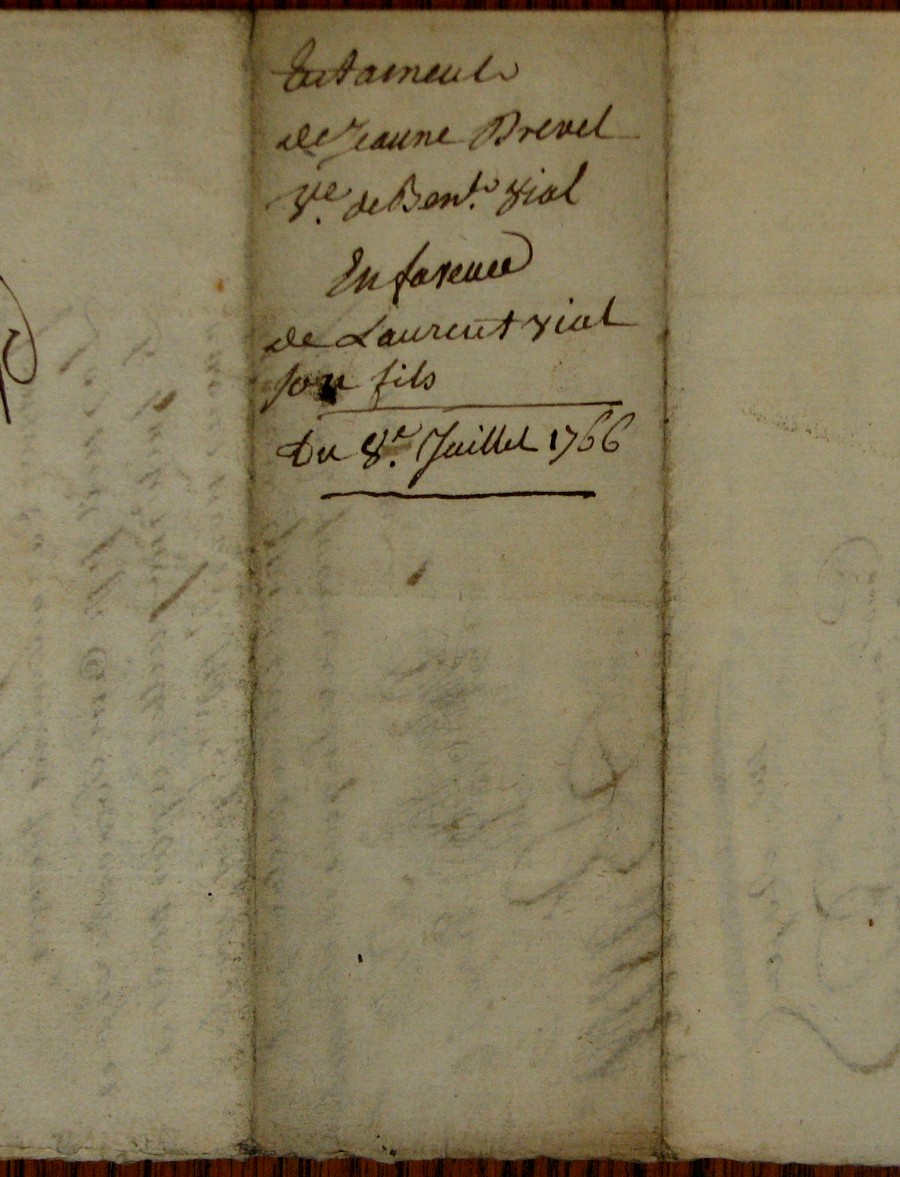 Testament
de Jeanne Brevet
Ve. de Bent. Vial
En faveur
de Laurent Vial
son fils
Du 8e. Juillet 1766